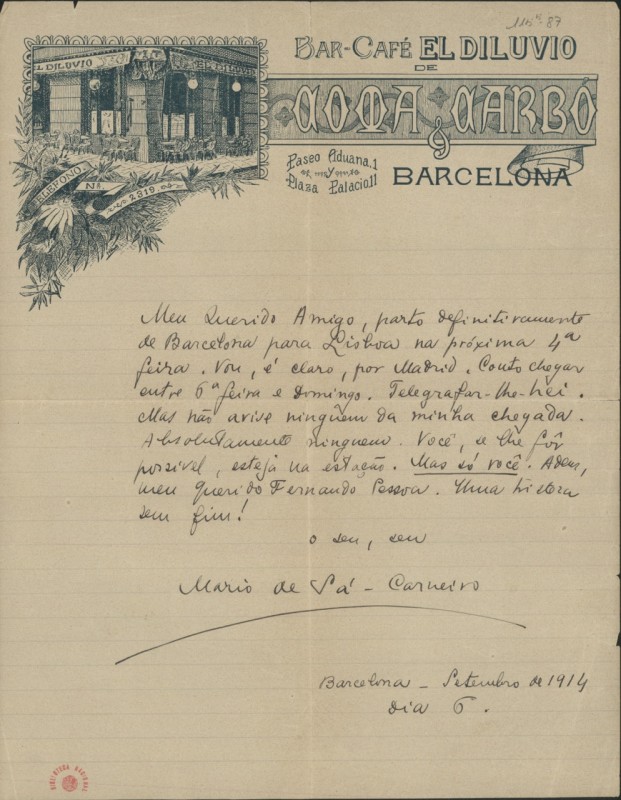 115⁵-87
BAR-CAFÉ EL DILUVIO
DE
COMA & CARBÓ
Paseo Aduana, 1
y
Plaza Palacio, 11
BARCELONA
EL DILUVIO
EL DILUVIO
TELEFONO
No. 2819
Meu Querido Amigo, parto definitivamente
de Barcelona para Lisboa na próxima 4ª
feira. Vou, é claro, por Madrid. Conto chegar
entre 6ª feira e Domingo. Telegrafar-lhe-hei.
Mas não avise ninguêm da minha chegada.
Absolutamente ninguem. Você, se lhe fôr
possivel, esteja na estação. Mas só você. Adeus,
meu querido Fernando Pessoa. Uma historia
sem fim!
o seu, seu
Mario de Sá-Carneiro
Barcelona - Setembro de 1914
dia 6.
BIBLIOTECA NACIONAL